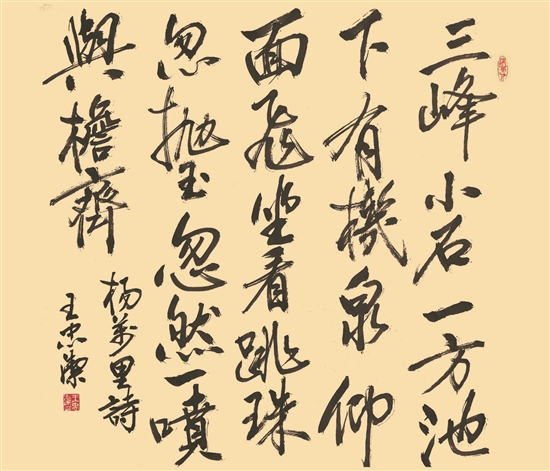 三峰小石一方池
下有機泉仰
面飛坐看跳珠
忽抛玉忽然一噴
與檐齊
杨萬里詩
王忠